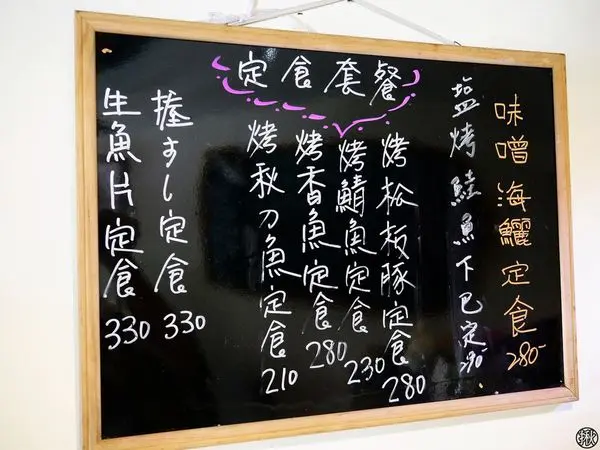 定食套餐
味噌海鱺定食 280-
塩烤鮭魚下巴定 290-
烤松板豚定食 280
烤鯖魚定食 230
烤香魚定食 280
烤秋刀魚定食 210
握すし定食 330
生魚片定食 330